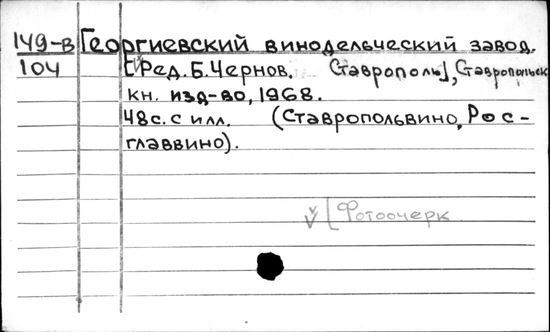 149-В Георгиевский винодельческий завод.
104 [Ред. Б. Чернов. Ставрополь], Ставропольск.
кн. изд-во, 1968.
48с. с илл. (Ставропольвино, Рос-
главвино).
[Фотоочерк